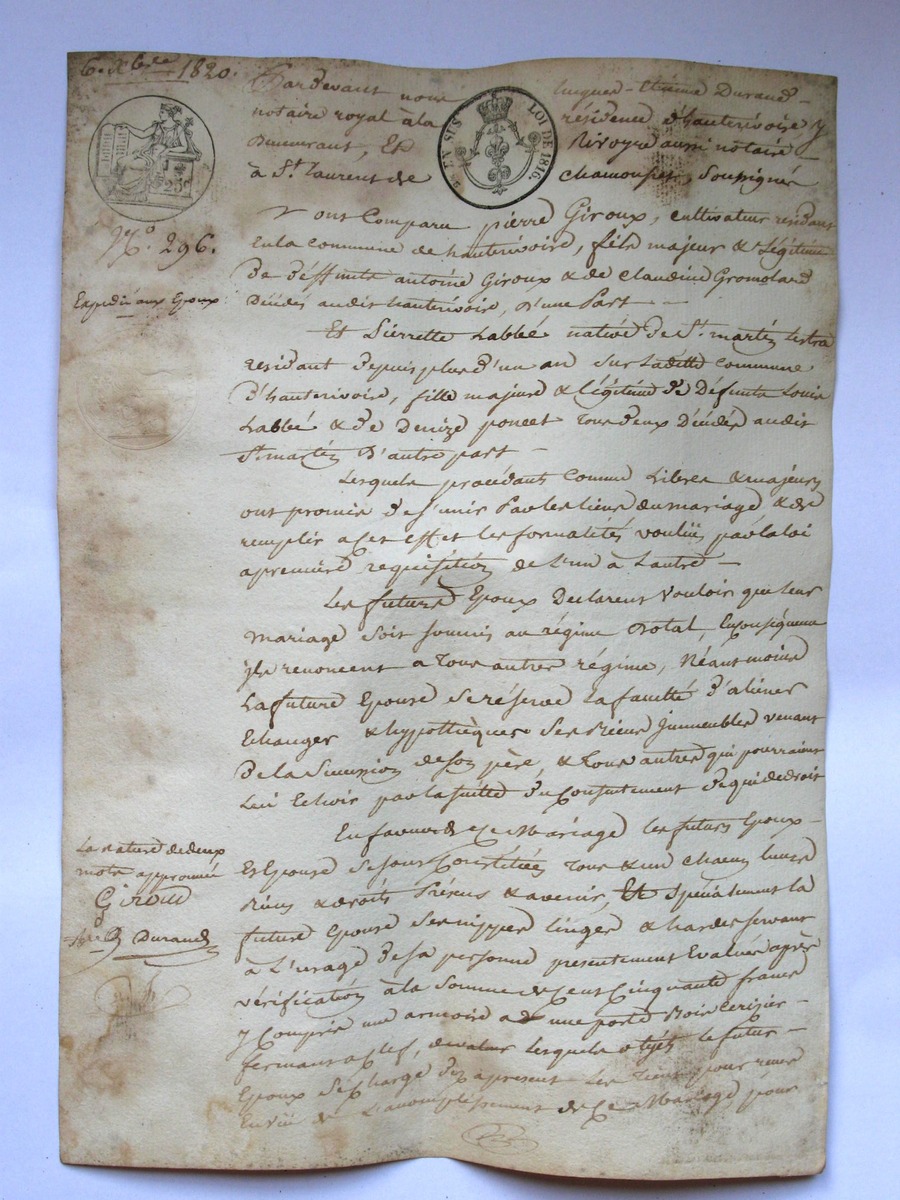 6. Xbre 1820.
Pardevant nous Etienne Durand
notaire royal a la résidence d'hauterivoire y
Demeurant, Et Rivoyre aussi notaire
à St. Laurent de chamousset, Soussignés
EN SUS LOI DE 1816.
25c
N.° 296.
Expedié aux Epoux
Y ont Comparu pierre Giroux, cultivateur residant
En la commune de hauterivoire, fils majeur & Légitime
De deffunts antoine Giroux & de Claudine Gromolard
Décédés audit hauterivoire, D'une Part
Et Pierrette Labbé native de St. martin Lestra
residant depuis plus d'un an sur Ladite Commune
D'hauterivoire, fille majeure & légitime de Defunts Louis
Labbé & de Denize poncet Tous deux Décédés audit
St. martin D'autre part
Lesquels procédant Comme Libres & majeurs
ont promis de s'unir Par les liens du mariage & de
remplir a cet effet les formalités voulües par la loi
a premiere requisition de l'un à l'autre
Les futurs Epoux Declarent Vouloir que leur
mariage soit soumis au régime Dotal, En conséquence
ils renoncent a Tous autres régime, Néantmoins
La future Epouse se réserve la faculté d'aliéner
Echanger & hypothèquer Ses Biens Immeubles venant
De la Succession de son père, & Tous autres qui pourraient
Lui Echoir par la suitte du Consentement de qui de droit
En faveur de Ce Mariage les futurs Epoux
Et Epouse se sont Constitués Tous & un chacun leurs
Biens & droits Présens & avenir, Et Spécialement la
future Epouse ses nippes linges & hardes servant
à L'usage de sa personne présentement Evalués après
vérification à la Somme de Cent Cinquante francs
y Compris une armoire a une porte Bois Cerisier
fermant a clef, de valeur lesquels objets le futur
Epoux se charge dez apresent Les Tient pour reçus
En vüe de L'accomplissement de Ce Mariage pour
La rature de deux
mots approuvée
Giroud
Durand